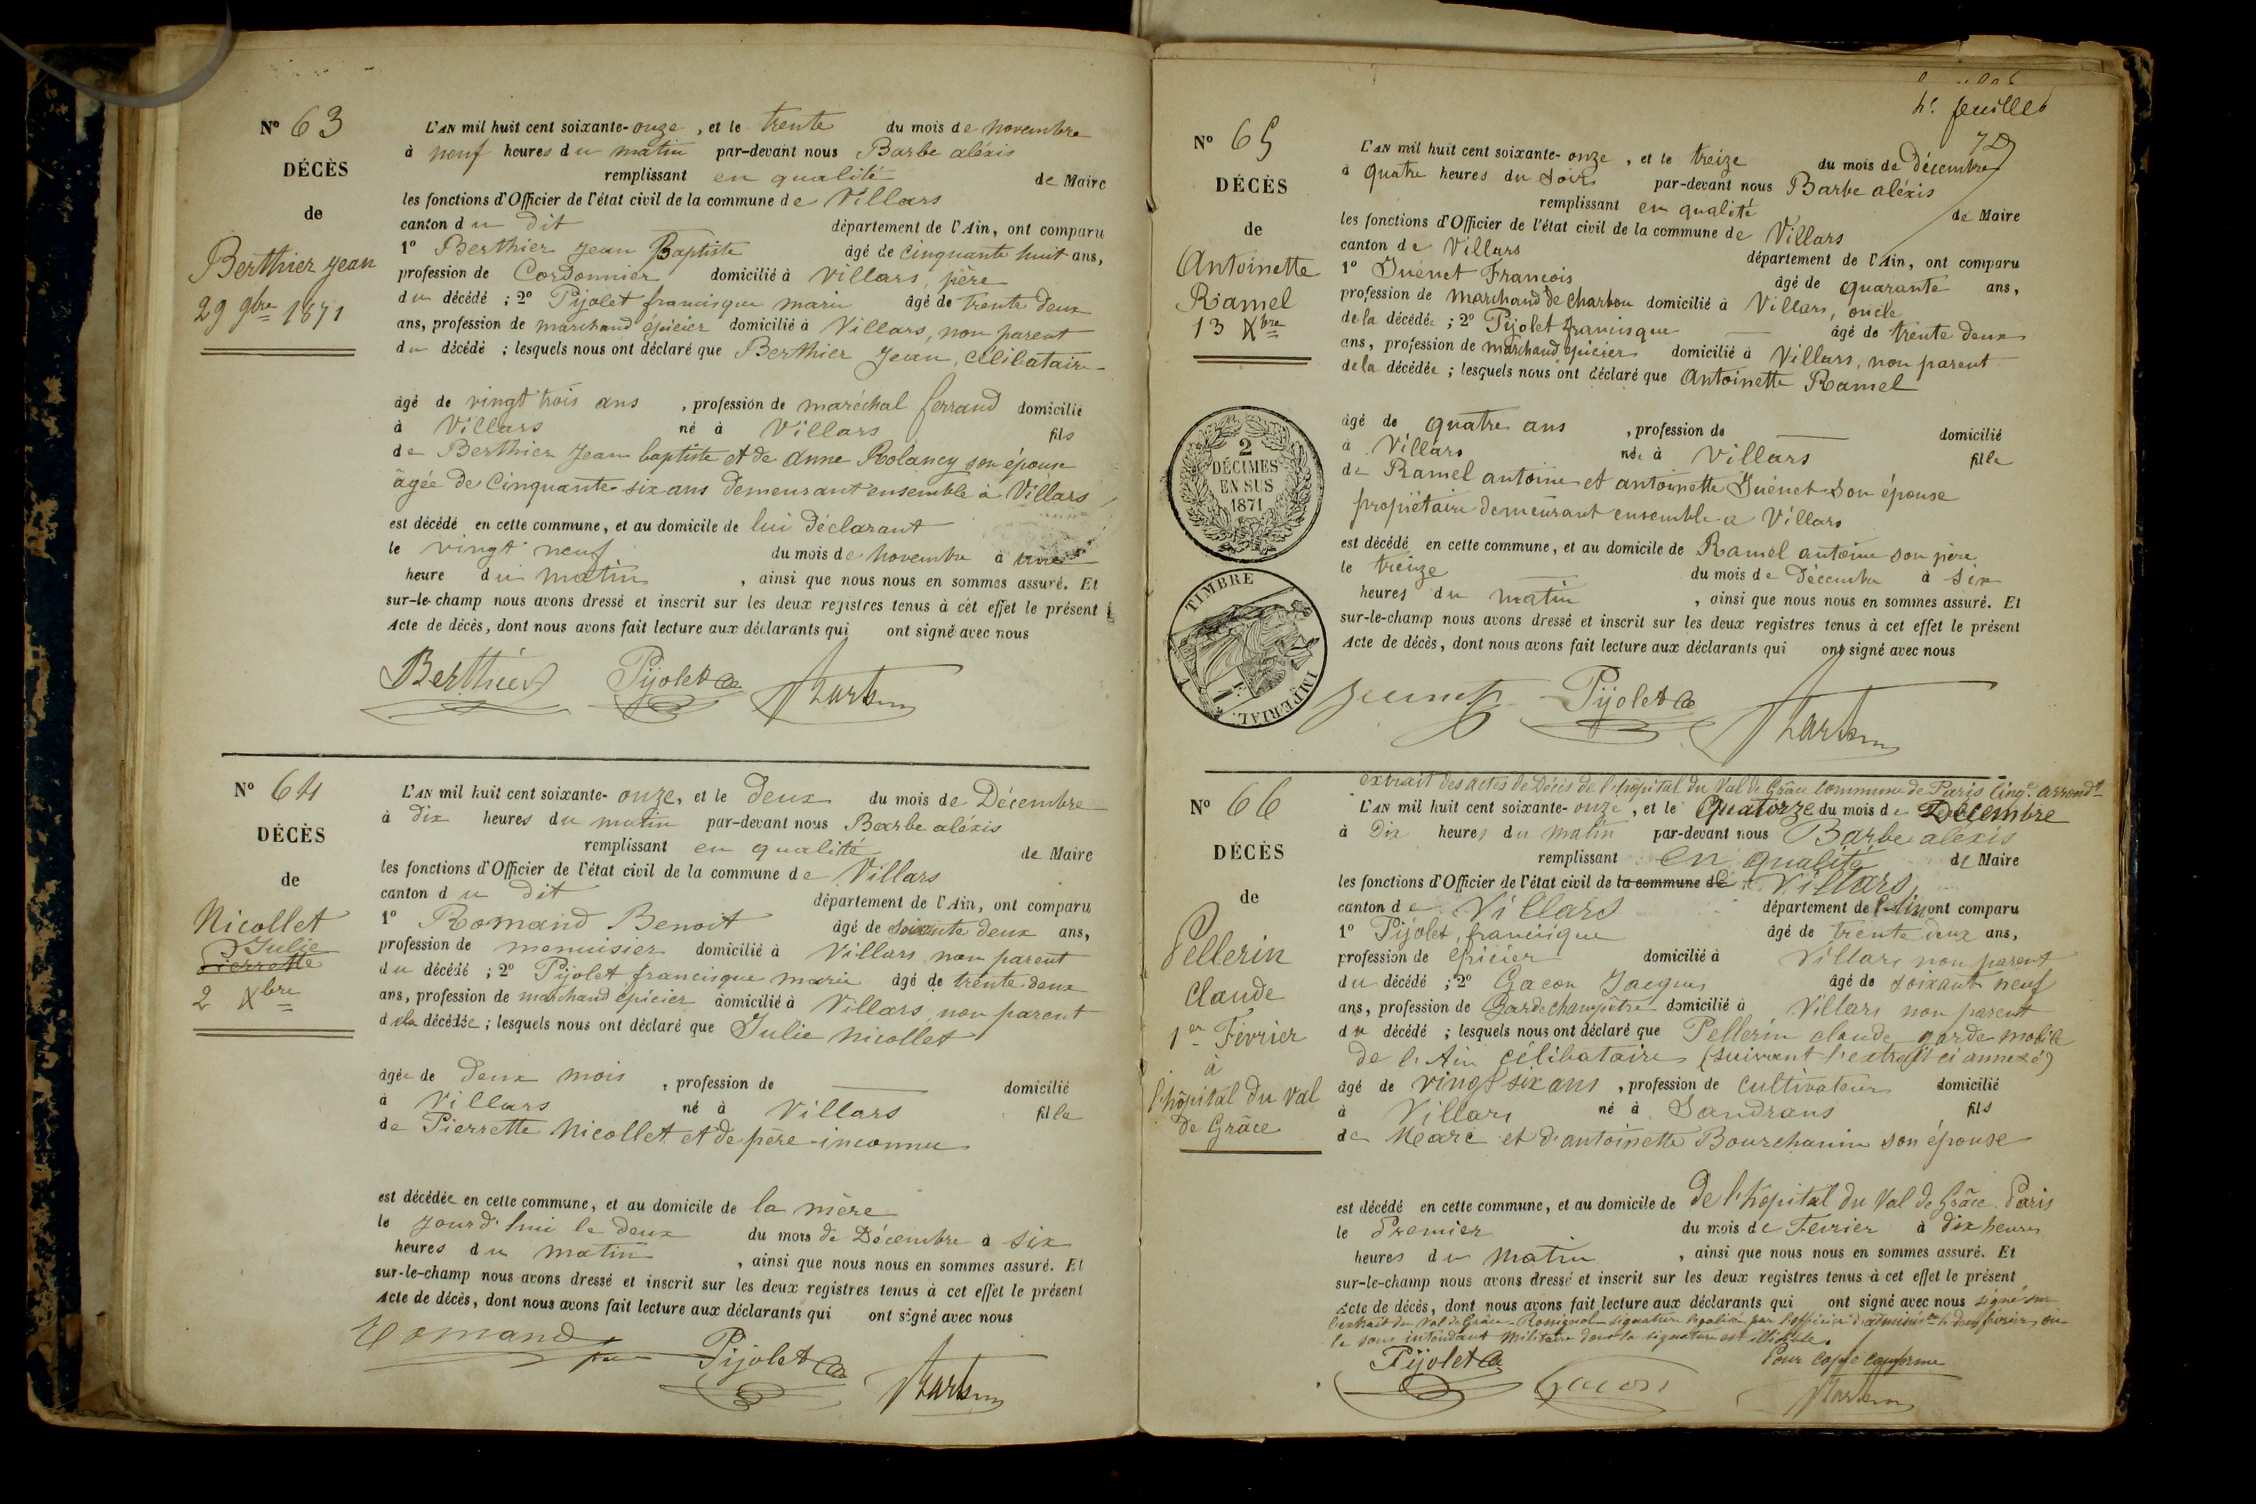 N° 63
DÉCÈS
de
Berthier Jean
29 9bre 1871
L'AN mil huit cent soixante-onze, et le trente du mois de novembre
à neuf heures du matin par-devant nous Barbe aléxis
remplissant en qualité de Maire
les fonctions d'Officier de l'état civil de la commune de Villars
canton du dit département de l'Ain, ont comparu
1° Berthier Jean Baptiste âgé de cinquante huit ans,
profession de Cordonnier domicilié à Villars, père
du décédé ; 2° Pijolet francisque marie âgé de trente deux
ans, profession de marchand épicier domicilié à Villars, non parent
du décédé ; lesquels nous ont déclaré que Berthier Jean, célibataire
âgé de vingt trois ans , profession de maréchal ferrand domicilié
à Villars né à Villars fils
de Berthier Jean baptiste et de Anne Rolancy son épouse
âgée de Cinquante six ans demeurant ensemble à Villars
est décédé en cette commune, et au domicile de lui déclarant
le vingt neuf du mois de novembre à
heure du matin , ainsi que nous nous en sommes assuré. Et
sur-le-champ nous avons dressé et inscrit sur les deux registres tenus à cet effet le présent
Acte de décès, dont nous avons fait lecture aux déclarants qui ont signé avec nous
Berthier Pijolet Barbe
N° 64
DÉCÈS
de
Nicollet
Julie
Pierrette
2 Xbre
L'AN mil huit cent soixante-onze, et le deux du mois de Décembre
à dix heures du matin par-devant nous Barbe aléxis
remplissant en qualité de Maire
les fonctions d'Officier de l'état civil de la commune de Villars
canton du dit département de l'Ain, ont comparu
1° Romand Benoit âgé de soixante deux ans,
profession de menuisier domicilié à Villars, non parent
du décédé ; 2° Pijolet francisque marie âgé de trente deux
ans, profession de marchand épicier domicilié à Villars, non parent
dela décédée ; lesquels nous ont déclaré que Julie Nicollet
âgée de deux mois , profession de domicilié
à Villars né à Villars fille
de Pierrette Nicollet et de père inconnu
est décédée en cette commune, et au domicile de la mère
le jourd'hui le deux du mois de Décembre à six
heures du matin , ainsi que nous nous en sommes assuré. Et
sur-le-champ nous avons dressé et inscrit sur les deux registres tenus à cet effet le présent
Acte de décès, dont nous avons fait lecture aux déclarants qui ont signé avec nous
Romand Pijolet Barbe
feuillet
N° 65
DÉCÈS
de
Antoinette
Ramel
13 Xbre
2
DÉCIMES
EN SUS
1871
TIMBRE
IMPÉRIAL
L'AN mil huit cent soixante-onze, et le treize du mois de décembre
à quatre heures du soir par-devant nous Barbe aléxis
remplissant en qualité de Maire
les fonctions d'Officier de l'état civil de la commune de Villars
canton de Villars département de l'Ain, ont comparu
1° Juénet François âgé de quarante ans,
profession de marchand de charbon domicilié à Villars, oncle
dela décédée ; 2° Pijolet francisque âgé de trente deux
ans, profession de marchand épicier domicilié à Villars, non parent
dela décédée ; lesquels nous ont déclaré que Antoinette Ramel
âgé de quatre ans , profession de domicilié
à Villars née à Villars fille
de Ramel antoine et antoinette Juénet son épouse
propriétaire demeurant ensemble a Villars
est décédé en cette commune, et au domicile de Ramel antoine son père
le treize du mois de Décembre à six
heures du matin , ainsi que nous nous en sommes assuré. Et
sur-le-champ nous avons dressé et inscrit sur les deux registres tenus à cet effet le présent
Acte de décès, dont nous avons fait lecture aux déclarants qui ont signé avec nous
Juenet Pijolet Barbe
extrait des actes de Décès de l'hôpital du Val de Grâce Commune de Paris Cinqe arrondt
N° 66
DÉCÈS
de
Pellerin
Claude
1er Février
à
l'hôpital du Val
de Grâce
L'AN mil huit cent soixante-onze, et le quatorze du mois de Décembre
à dix heures du matin par-devant nous Barbe alexis
remplissant en qualité de Maire
les fonctions d'Officier de l'état civil de la commune de Villars
canton de Villars département de l'Ain ont comparu
1° Pijolet francisque âgé de trente deux ans,
profession de épicier domicilié à Villars non parent
du décédé ; 2° Gacon Jacques âgé de soixante neuf
ans, profession de Garde champêtre domicilié à Villars non parent
du décédé ; lesquels nous ont déclaré que Pellerin claude garde mobile
de l'Ain célibataire (suivant l'extrait ci annexé)
âgé de vingt six ans , profession de cultivateur domicilié
à Villars né à Sandrans fils
de Marc et d'antoinette Bourchanin son épouse
est décédé en cette commune, et au domicile de de l'hôpital du Val de Grâce Paris
le Premier du mois de Fevrier à dix heures
heures du matin , ainsi que nous nous en sommes assuré. Et
sur-le-champ nous avons dressé et inscrit sur les deux registres tenus à cet effet le présent
Acte de décès, dont nous avons fait lecture aux déclarants qui ont signé avec nous signé sur
l'extrait du Val de Grâce Rossignol signature légalisée par l'officier d'administon
le sous intendant Militaire dont la signature est illisible.
Pour copie conforme
Pijolet Gacon Barbe